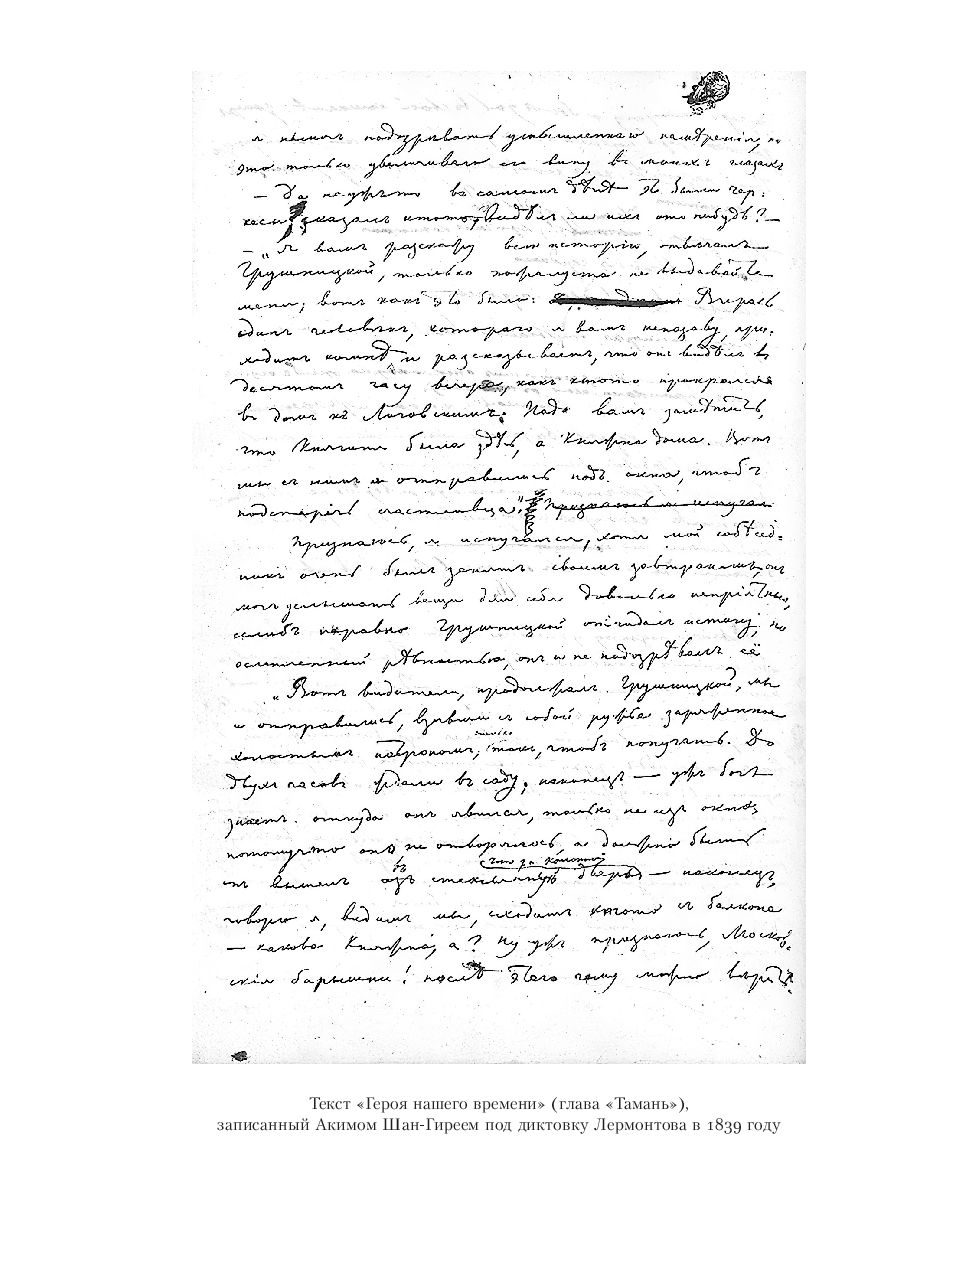 я началъ подозрѣвать умышленное намѣреніе, но
это только увеличивало его вину въ моихъ глазахъ
— Да неужто въ самомъ дѣлѣ это были чер-
кесы, сказалъ ктото, видѣлъ ли ихъ кто нибудь? —
— „Я вамъ разскажу всю исторію, отвѣчалъ
Грушницкой, только пожалуста не выдавайте
меня; вотъ какъ это было: Вчерась
одинъ человѣкъ, котораго я вамъ неназову, при-
ходитъ комнѣ, и разсказываетъ, что онъ видѣлъ въ
десятомъ часу вечера, какъ ктото прокрался
въ домъ къ Лиговскимъ. Надо вамъ замѣтить,
что Княгиня была здѣсь, а Княжна дома. Вотъ
мы съ нимъ и отправились подъ окна, чтобъ
подстеречь счастливца". Признаюсь я испугал
Признаюсь, я испугался, хотя мой собѣсѣд-
никъ очень былъ занятъ своимъ завтракомъ, онъ
могъ услышать вещи для себя довольно непріятныя,
еслибъ неравно Грушницкой отгадалъ истину; но
ослѣпленный рѣвностью, онъ и не подозрѣвалъ её
„Вотъ видители, продолжалъ Грушницкой, мы
и отправились, взявши съ собой ружье заряженное
холостымъ патрономъ, только такъ, чтобъ попугать. До
двухъ часовъ ждали въ саду, наконецъ — ужъ богъ
знаетъ откуда онъ явился, только не изъ окна,
потомучто оно не отворялось, а должно быть
онъ вышелъ въ стеклянную дверь что за колонной — наконецъ,
говорю я, видимъ мы, сходитъ ктото съ балкона
— какова Княжна, а? Ну ужъ признаюсь, Москов-
скія барышни! послѣ этого чему можно вѣрить?
Текст «Героя нашего времени» (глава «Тамань»),
записанный Акимом Шан-Гиреем под диктовку Лермонтова в 1839 году